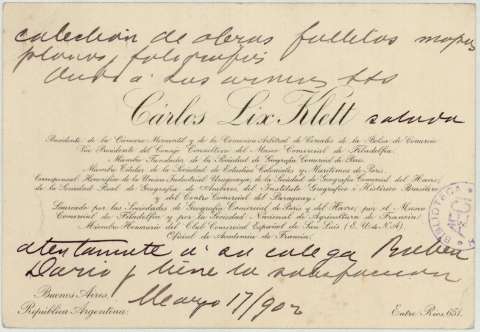 colección de obras folletos mapas
planos, fotografias
Cárlos Lix Klett saluda
Presidente de la Cámara Mercantil y de la Comisión Arbitral de Cereales de la Bolsa de Comercio
Vice Presidente del Consejo Consultivo del Museo Comercial de Filadelfia
Miembro Fundador de la Sociedad de Geografía Comercial de Paris
Miembro Titular de la Sociedad de Estudios Coloniales y Marítimos de Paris
Corresponsal Honorario de la Unión Industrial Uruguaya, de la Sociedad de Geografía Comercial del Havre,
de la Sociedad Real de Geografía de Anvers, del Instituto Geográfico é Histórico Brasilero
y del Centro Comercial del Paraguay
Laureado por las Sociedades de Geografía Comercial de Paris y del Havre, por el Museo
Comercial de Filadelfia y por la Sociedad Nacional de Agricultura de Francia
Miembro Honorario del Club Comercial Español de San Luis (E.U. de N.A.)
Oficial de Academia de Francia
BIBLIOTECA
atentamente á su colega Ruben
Dario y tiene la satisfaccion
Buenos Aires, Marzo 17/902
República Argentina. Entre Rios 651.